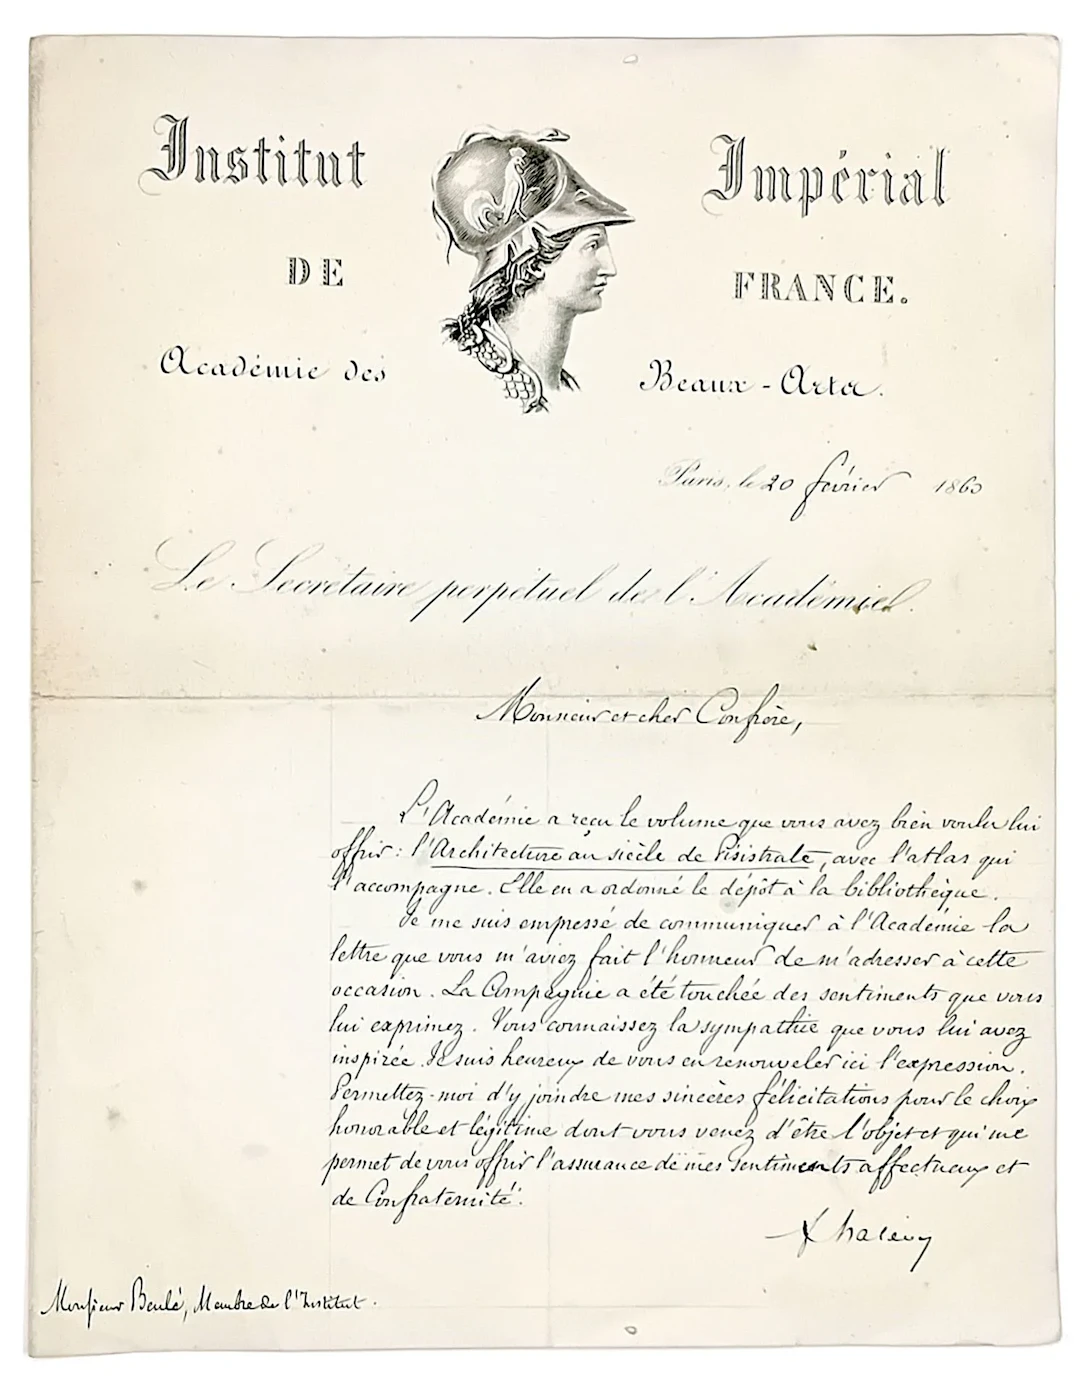 Institut Impérial
DE FRANCE.
Académie des Beaux-Arts.
Paris, le 20 février 1860
Le Secrétaire perpétuel de l'Académie
Monsieur et cher Confrère,
L'Académie a reçu le volume que vous avez bien voulu lui
offrir : l'Architecture au siècle de Pisistrate, avec l'atlas qui
l'accompagne. Elle en a ordonné le dépôt à la bibliothèque.
Je me suis empressé de communiquer à l'Académie la
lettre que vous m'aviez fait l'honneur de m'adresser à cette
occasion. La Compagnie a été touchée des sentiments que vous
lui exprimez. Vous connaissez la sympathie que vous lui avez
inspirée. Je suis heureux de vous en renouveler ici l'expression.
Permettez-moi d'y joindre mes sincères félicitations pour le choix
honorable et légitime dont vous venez d'être l'objet et qui me
permet de vous offrir l'assurance de mes sentiments affectueux et
de Confraternité.
F halévy
Monsieur Beulé, Membre de l'Institut.